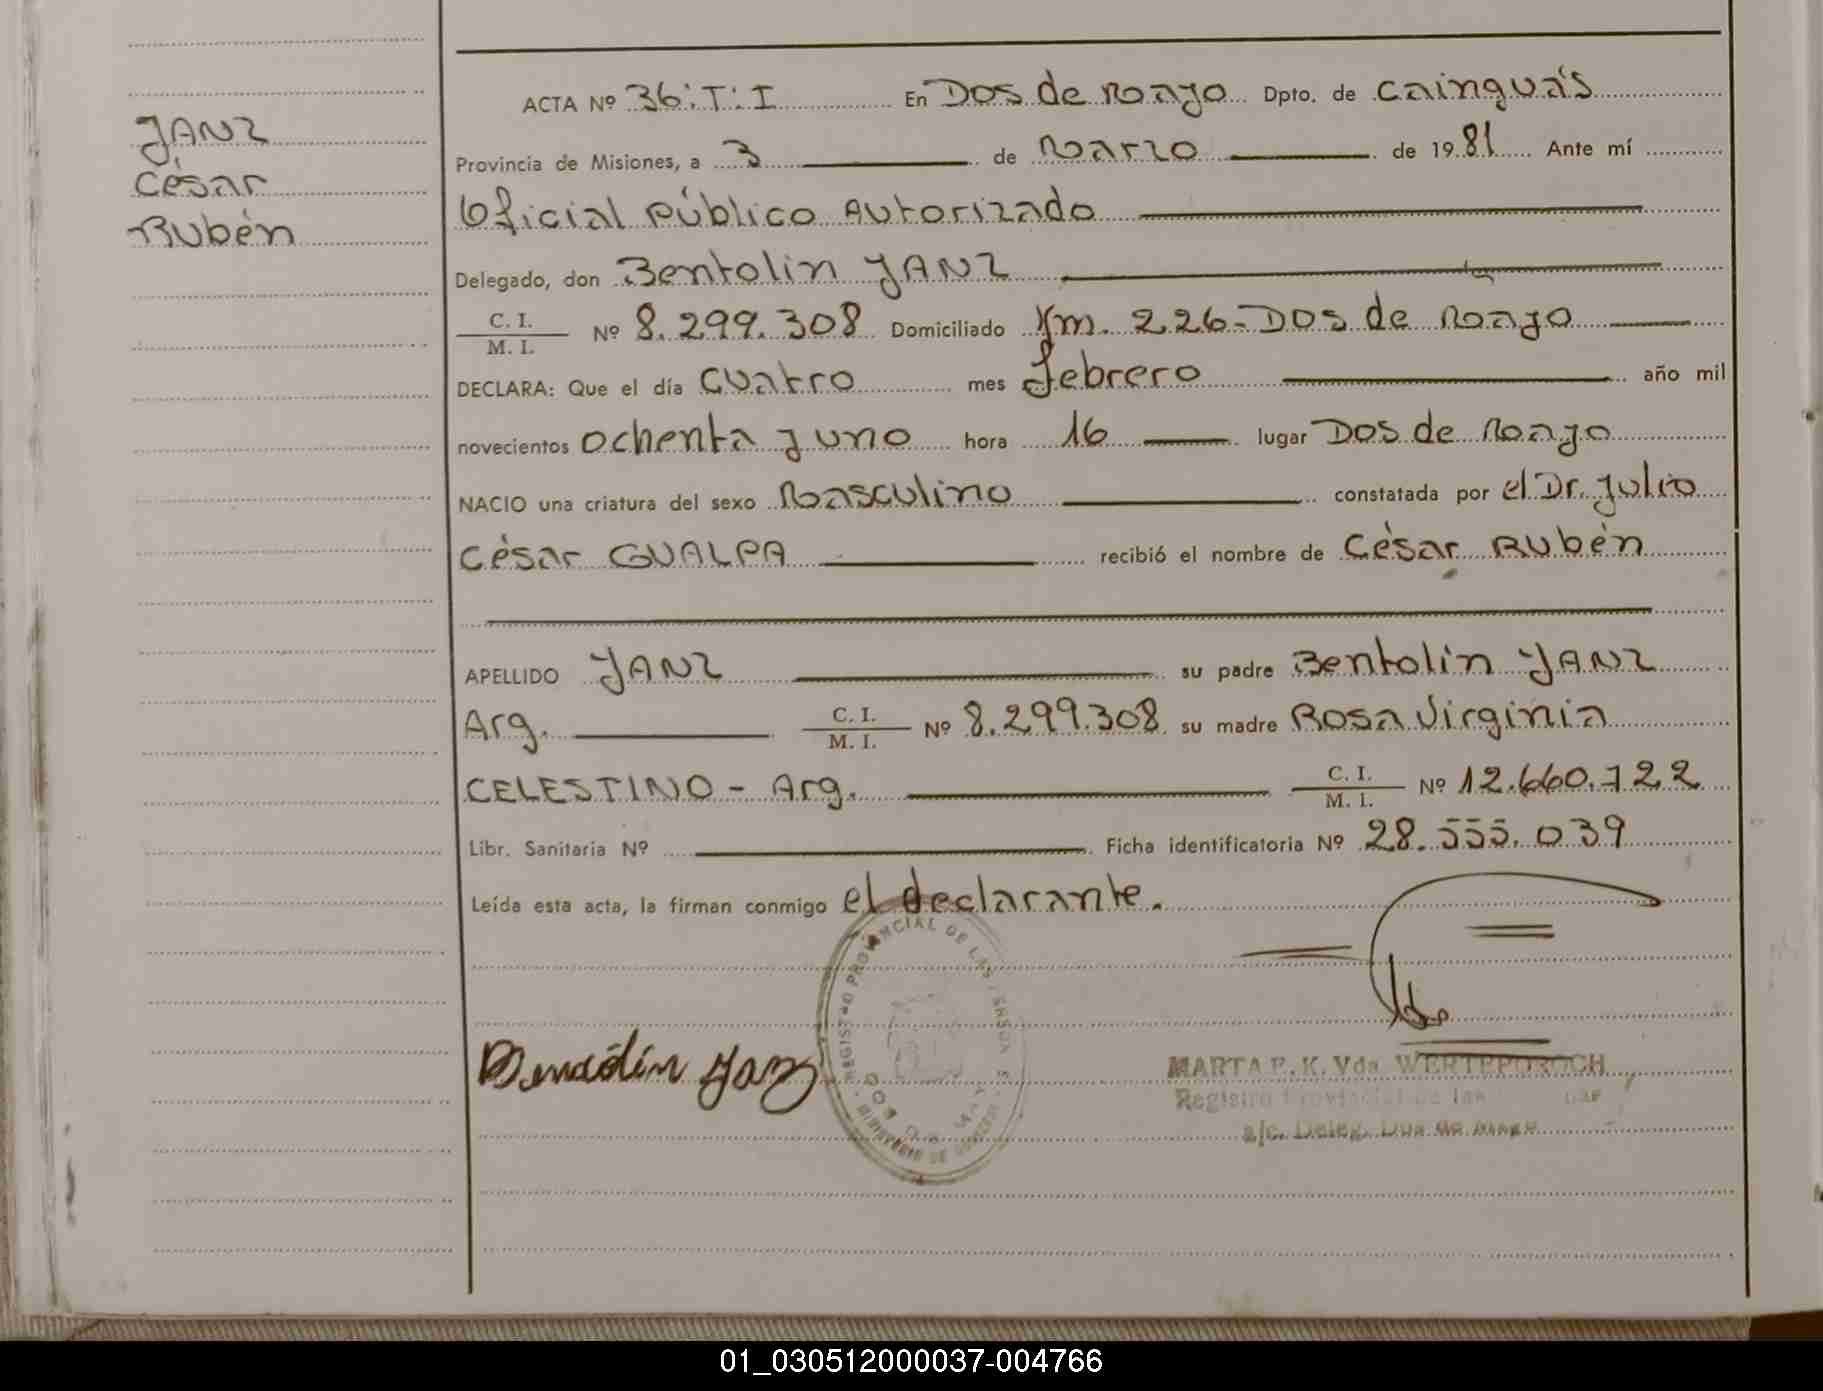 JANZ
César
Rubén
ACTA Nº 36:T:I En Dos de Mayo Dpto. de Cainguás
Provincia de Misiones, a 3 de Marzo de 1981 Ante mí
Oficial Público Autorizado
Delegado, don Bentolin JANZ
C. I.
M. I. Nº 8.299.308 Domiciliado Km. 226-Dos de Mayo
DECLARA: Que el día cuatro mes febrero año mil
novecientos ochenta y uno hora 16 lugar Dos de Mayo
NACIO una criatura del sexo Masculino constatada por el Dr. Julio
César GUALPA recibió el nombre de César Rubén
APELLIDO JANZ su padre Bentolin JANZ
Arg. C. I.
M. I. Nº 8.299.308 su madre Rosa Virginia
CELESTINO - Arg. C. I.
M. I. Nº 12.660.722
Libr. Sanitaria Nº Ficha identificatoria Nº 28.555.039
Leída esta acta, la firman conmigo el declarante.
REGISTRO PROVINCIAL DE LAS PERSONAS
DOS DE MAYO
MINISTERIO DE GOBIERNO
MARTA P. K. Vda. WERTEPOROCH
Registro Provincial de las
a/c. Deleg. Dos de Mayo
01_030512000037-004766